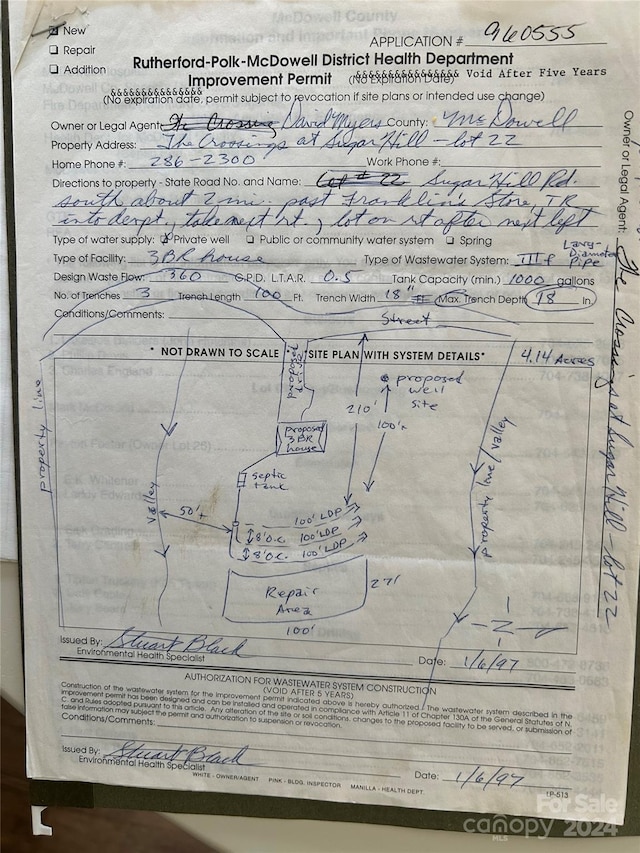 ☑ New
☐ Repair
☐ Addition
APPLICATION # 960555
Rutherford-Polk-McDowell District Health Department
Improvement Permit (No Expiration Date) Void After Five Years
(No expiration date, permit subject to revocation if site plans or intended use change)
Owner or Legal Agent: The Crossing David Myers County: McDowell
Property Address: The Crossings at Sugar Hill - lot 22
Home Phone #: 286-2300 Work Phone #:
Directions to property - State Road No. and Name: Lot # 22 Sugar Hill Rd.
south about 2 mi. past Franklin's Store, TR
into devpt, take next rt., lot on rt after next left
Type of water supply: ☑ Private well ☐ Public or community water system ☐ Spring
Type of Facility: 3BR house Type of Wastewater System: III f Large Diameter Pipe
Design Waste Flow: 360 G.P.D. L.T.A.R. 0.5 Tank Capacity (min.) 1000 gallons
No. of Trenches 3 Trench Length 100 Ft. Trench Width 18" Max. Trench Depth 18 In.
Conditions/Comments:
Street
* NOT DRAWN TO SCALE SITE PLAN WITH SYSTEM DETAILS* 4.14 Acres
property line
proposed drive
proposed well site
210'
100'+
proposed 3BR house
septic tank
valley
50'+
property line/valley
100' LDP
8' O.C. 100' LDP
8' O.C. 100' LDP
Repair Area
27'
100'
N
Issued By: Stuart Black
Environmental Health Specialist
Date: 1/6/97
AUTHORIZATION FOR WASTEWATER SYSTEM CONSTRUCTION
(VOID AFTER 5 YEARS)
Construction of the wastewater system for the improvement permit indicated above is hereby authorized. The wastewater system described in the
improvement permit has been designed and can be installed and operated in compliance with Article 11 of Chapter 130A of the General Statutes of N.
C. and Rules adopted pursuant to this article. Any alteration of the site or soil conditions, changes to the proposed facility to be served, or submission of
false information may subject the permit and authorization to suspension or revocation.
Conditions/Comments:
Issued By: Stuart Black
Environmental Health Specialist
Date: 1/6/97
WHITE - OWNER/AGENT PINK - BLDG. INSPECTOR MANILLA - HEALTH DEPT.
TP-513
Owner or Legal Agent: The Crossings at Sugar Hill - lot 22
For Sale
canopy MLS 2024